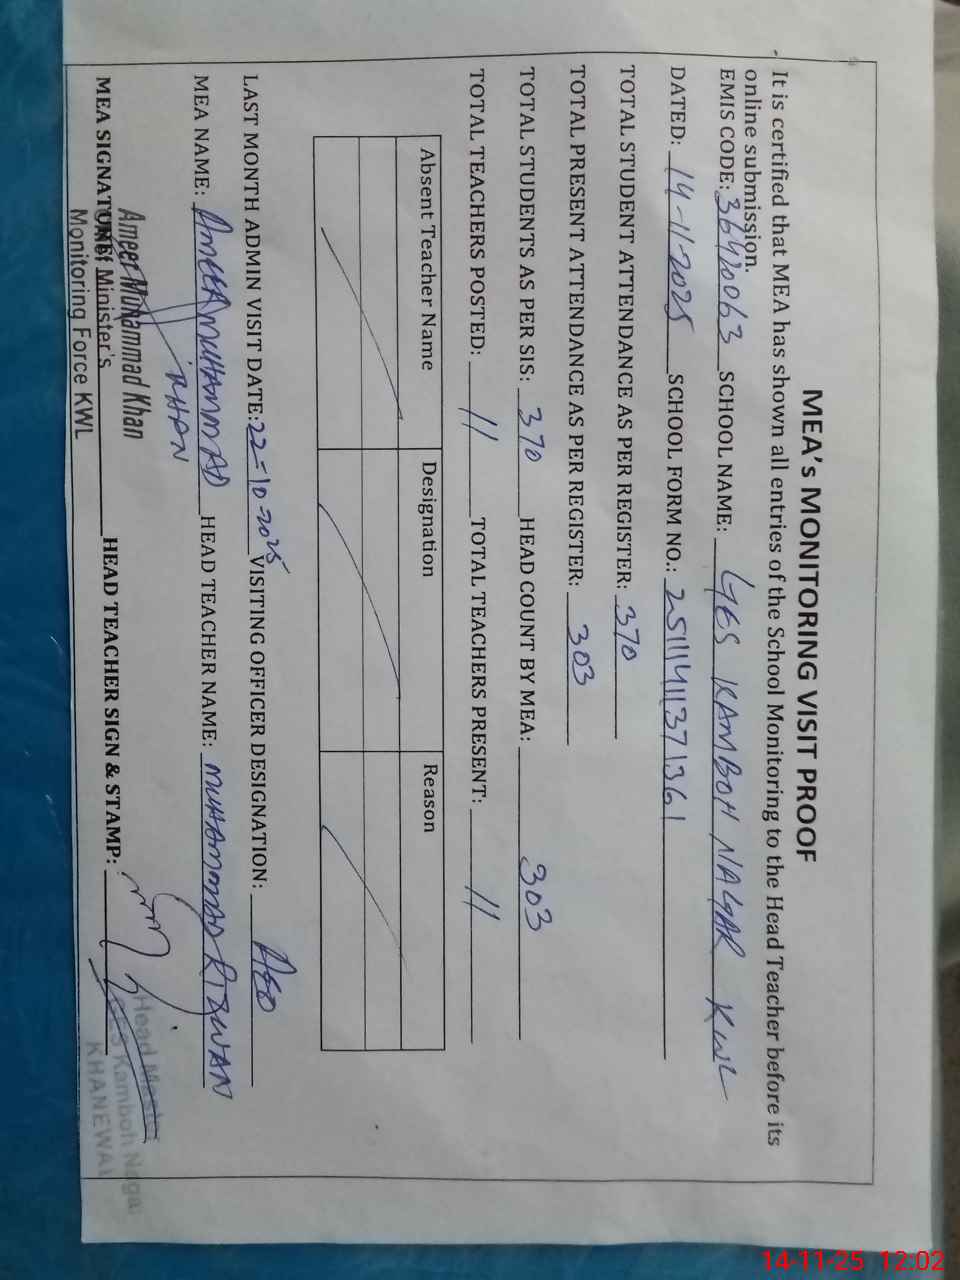 MEA's MONITORING VISIT PROOF
It is certified that MEA has shown all entries of the School Monitoring to the Head Teacher before its
online submission.
EMIS CODE: 36420063 SCHOOL NAME: GES KAMBOH NAGAR KWL
DATED: 14-11-2025 SCHOOL FORM NO.: 25111411371361
TOTAL STUDENT ATTENDANCE AS PER REGISTER: 370
TOTAL PRESENT ATTENDANCE AS PER REGISTER: 303
TOTAL STUDENTS AS PER SIS: 370 HEAD COUNT BY MEA: 303
TOTAL TEACHERS POSTED: 11 TOTAL TEACHERS PRESENT: 11
Absent Teacher Name Designation Reason
LAST MONTH ADMIN VISIT DATE: 22-10-2025 VISITING OFFICER DESIGNATION: AEO
MEA NAME: AMEER MUHAMMAD KHAN HEAD TEACHER NAME: MUHAMMAD RIZWAN
MEA SIGNATURE: HEAD TEACHER SIGN & STAMP:
Ameer Muhammad Khan
Chief Minister's
Monitoring Force KWL
Head Master
GES Kamboh Nagar
KHANEWAL
14-11-25 12:02